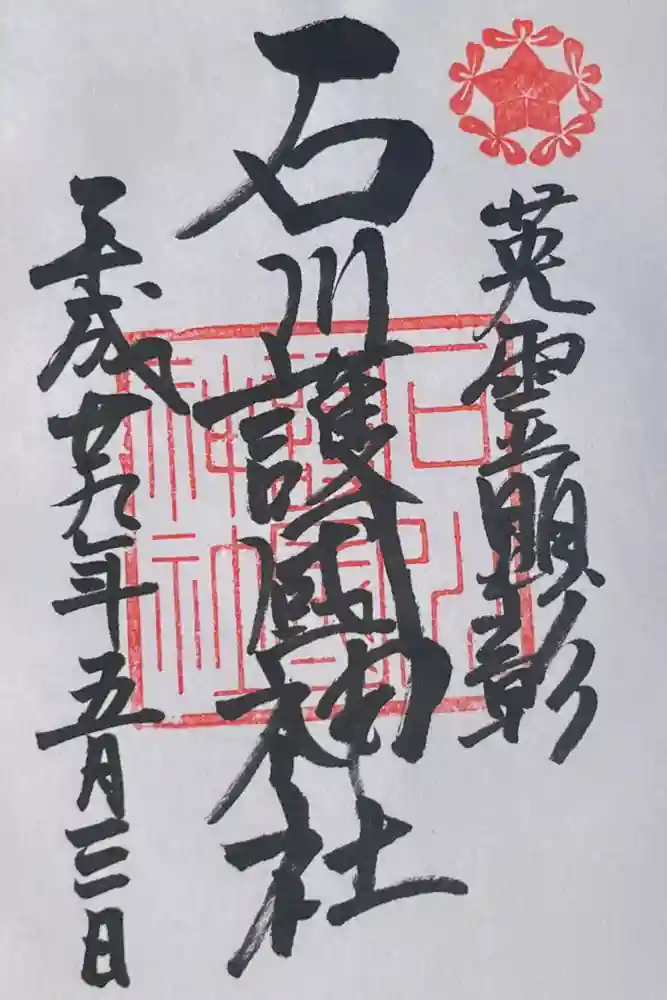 英霊顕彰
石川護國神社
平成廿九年五月三日
石川護國神社